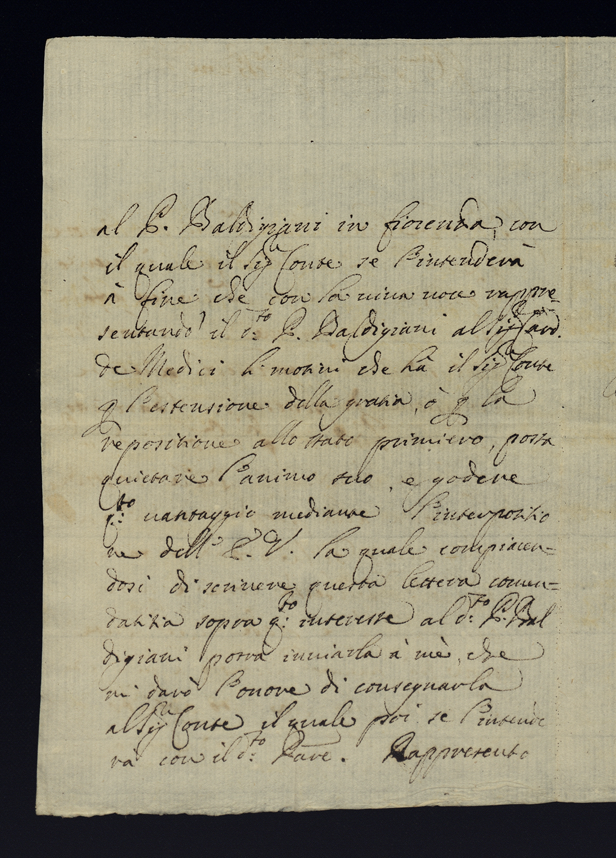 al P. Baldigiani in fiorenza, con
il quale il Sig.r Conte se l'intenderà
à fine che con la viva voce rappre-
sentando il d.to P. Baldigiani al Sig.r Card.
de Medici li motivi che hà il Sig.r Conte
p l'estensione della gratia, ò p la
repositione allo stato primiero, possa
quietare l'animo suo, e godere
q.to vantaggio mediante l'interpositio
ne dell' P. V. la quale compiacen=
dosi di scrivere questa lettera comen=
datitia sopra q.to interesse al d.to P. Bal
digiani potrà inviarla à mè, che
mi darò l'onore di consegnarla
al Sig.r Conte il quale poi se l'intende
rà con il d.to Pare. Rappresento